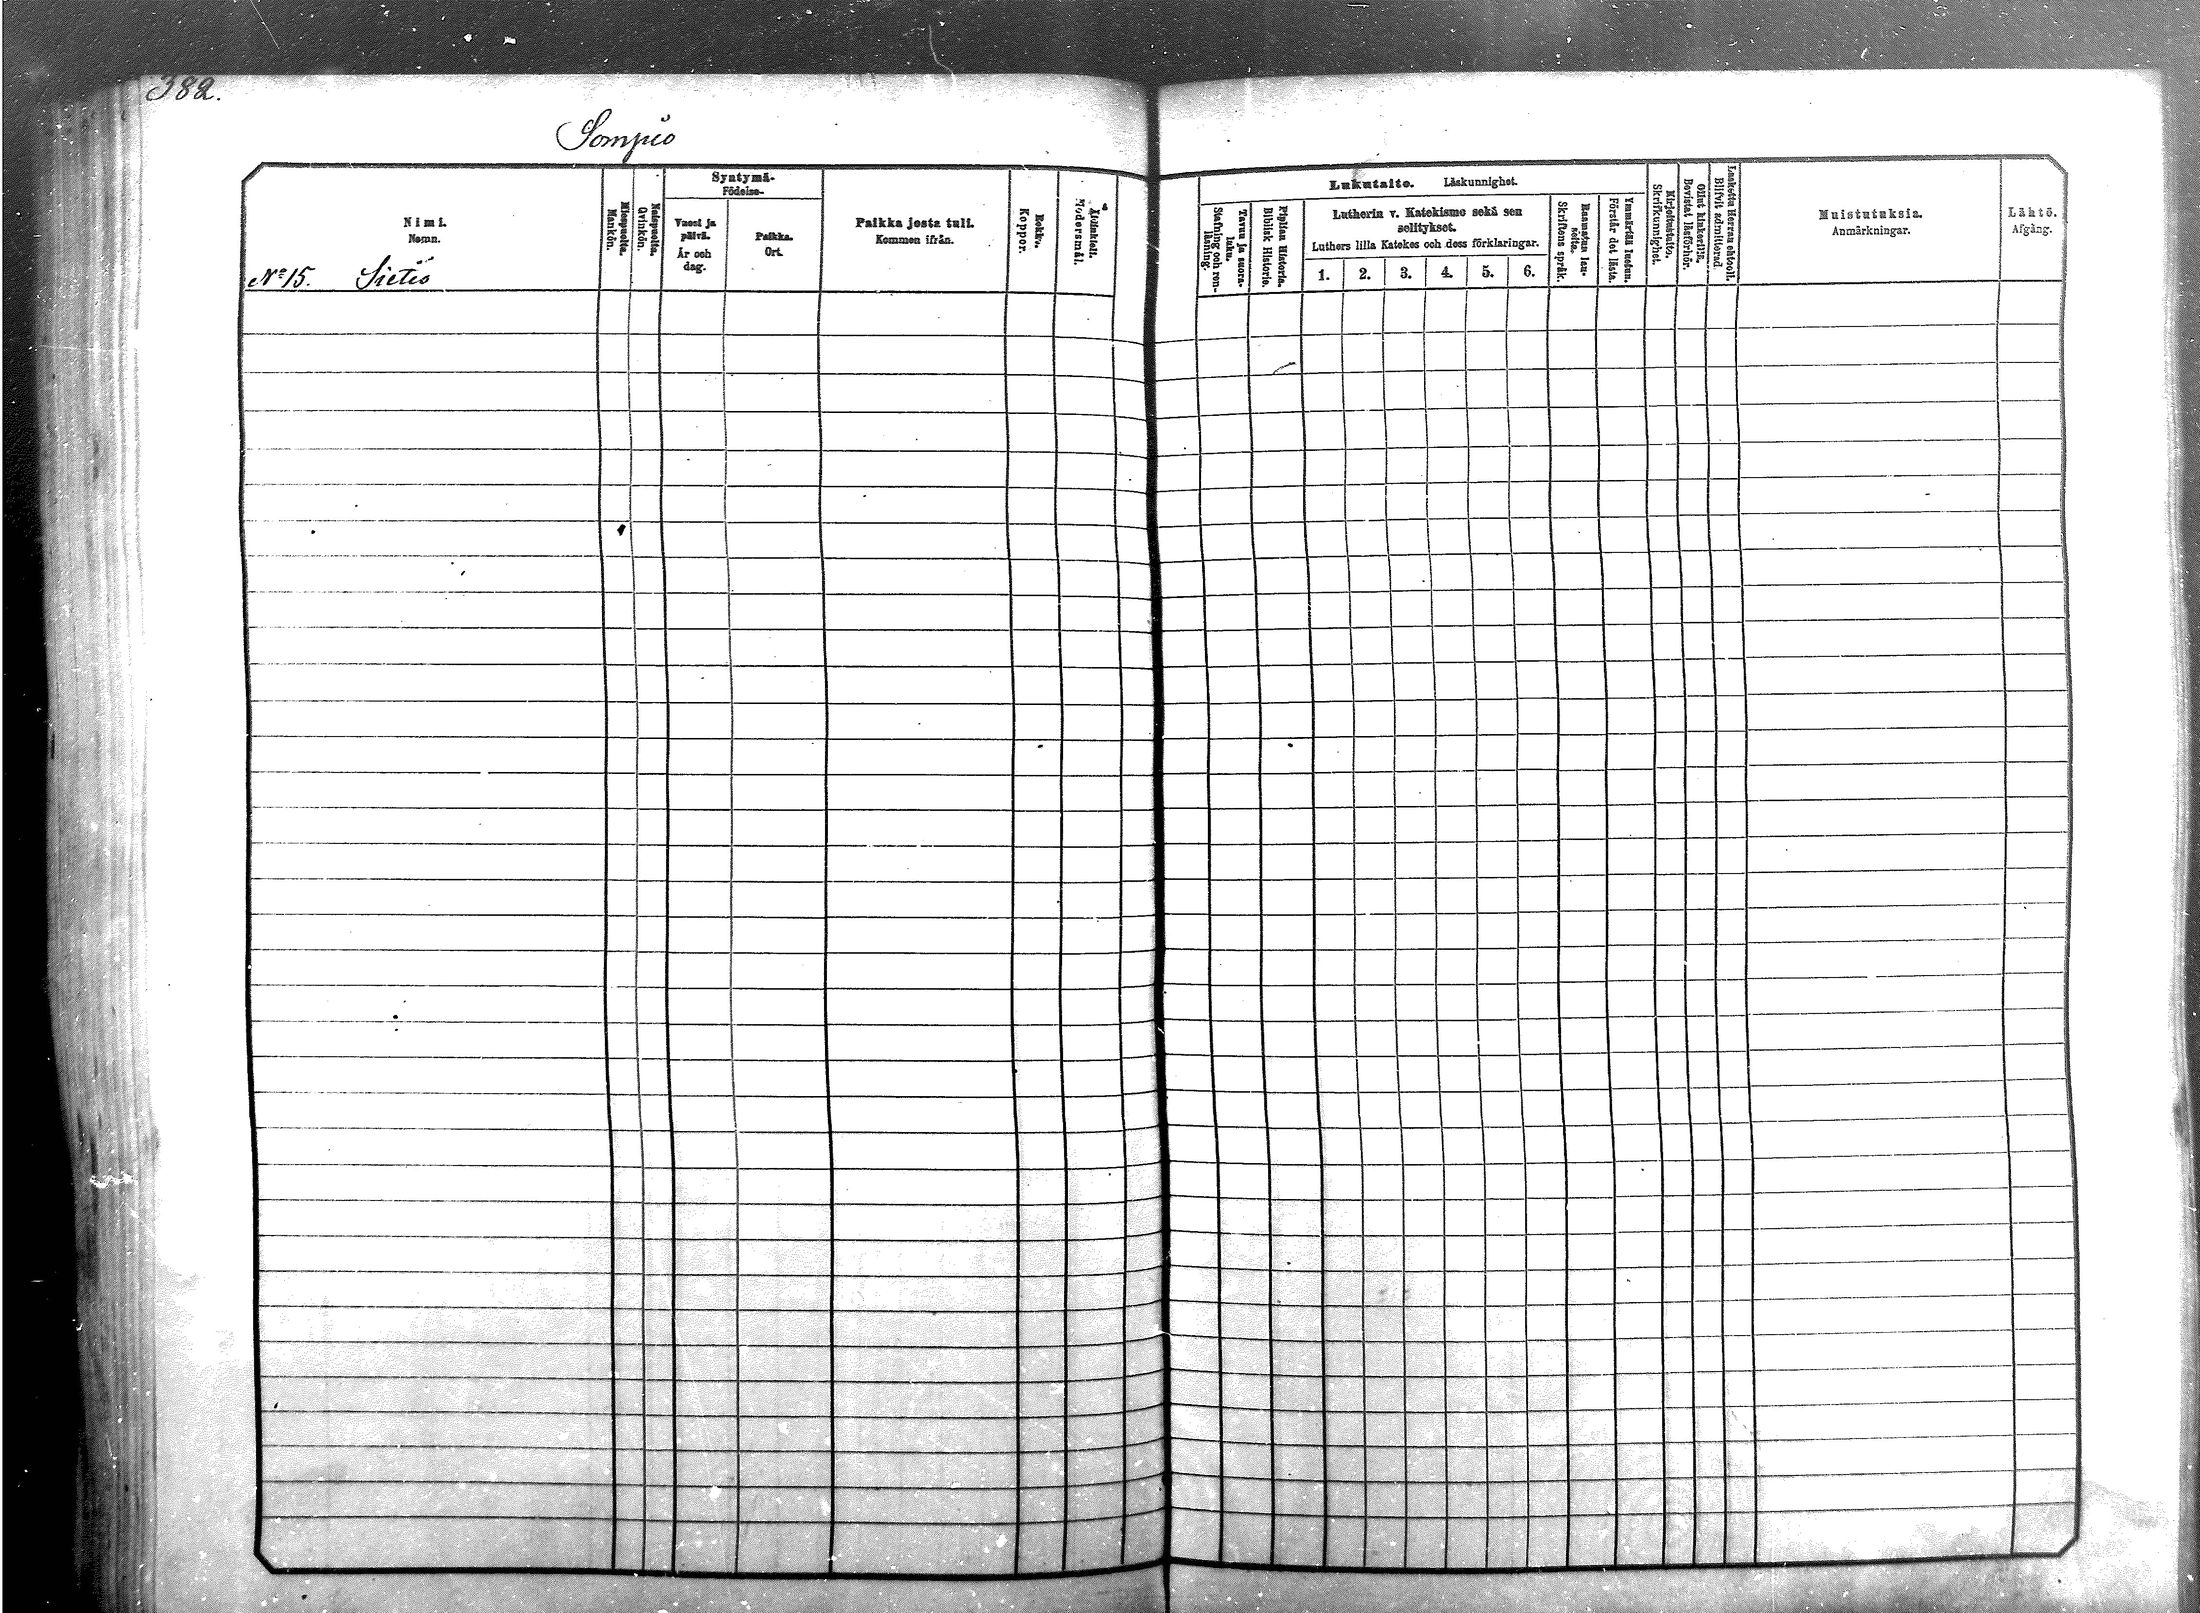 382.
Sompio
Nimi.
Namn.
Miespuolta.
Mankön.
Naispuolta.
Qvinkön.
Syntymä-
Födelse-
Vuosi ja
päivä.
År och
dag.
Paikka.
Ort.
Paikka josta tuli.
Kommen ifrån.
Rokko.
Koppor.
Äidinkieli.
Modersmål.
Lukutaito. Läskunnighet.
Tavuu ja suora-
luku.
Stafning och ren-
läsning.
Piplian Historia.
Biblisk Historie.
Lutherin v. Katekismo sekä sen
selitykset.
Luthers lilla Katekes och dess förklaringar.
1. 2. 3. 4. 5. 6.
Raamatun lau-
seita.
Skriftens språk.
Ymmärtää luetun.
Förstår det lästa.
Kirjoitustaito.
Skrifkunnighet.
Ollut kinkerillä.
Bevistat läsförhör.
Laskettu Herran ehtooll.
Blifvit admitterad.
Muistutuksia.
Anmärkningar.
Lähtö.
Afgång.
No 15. Sietiö